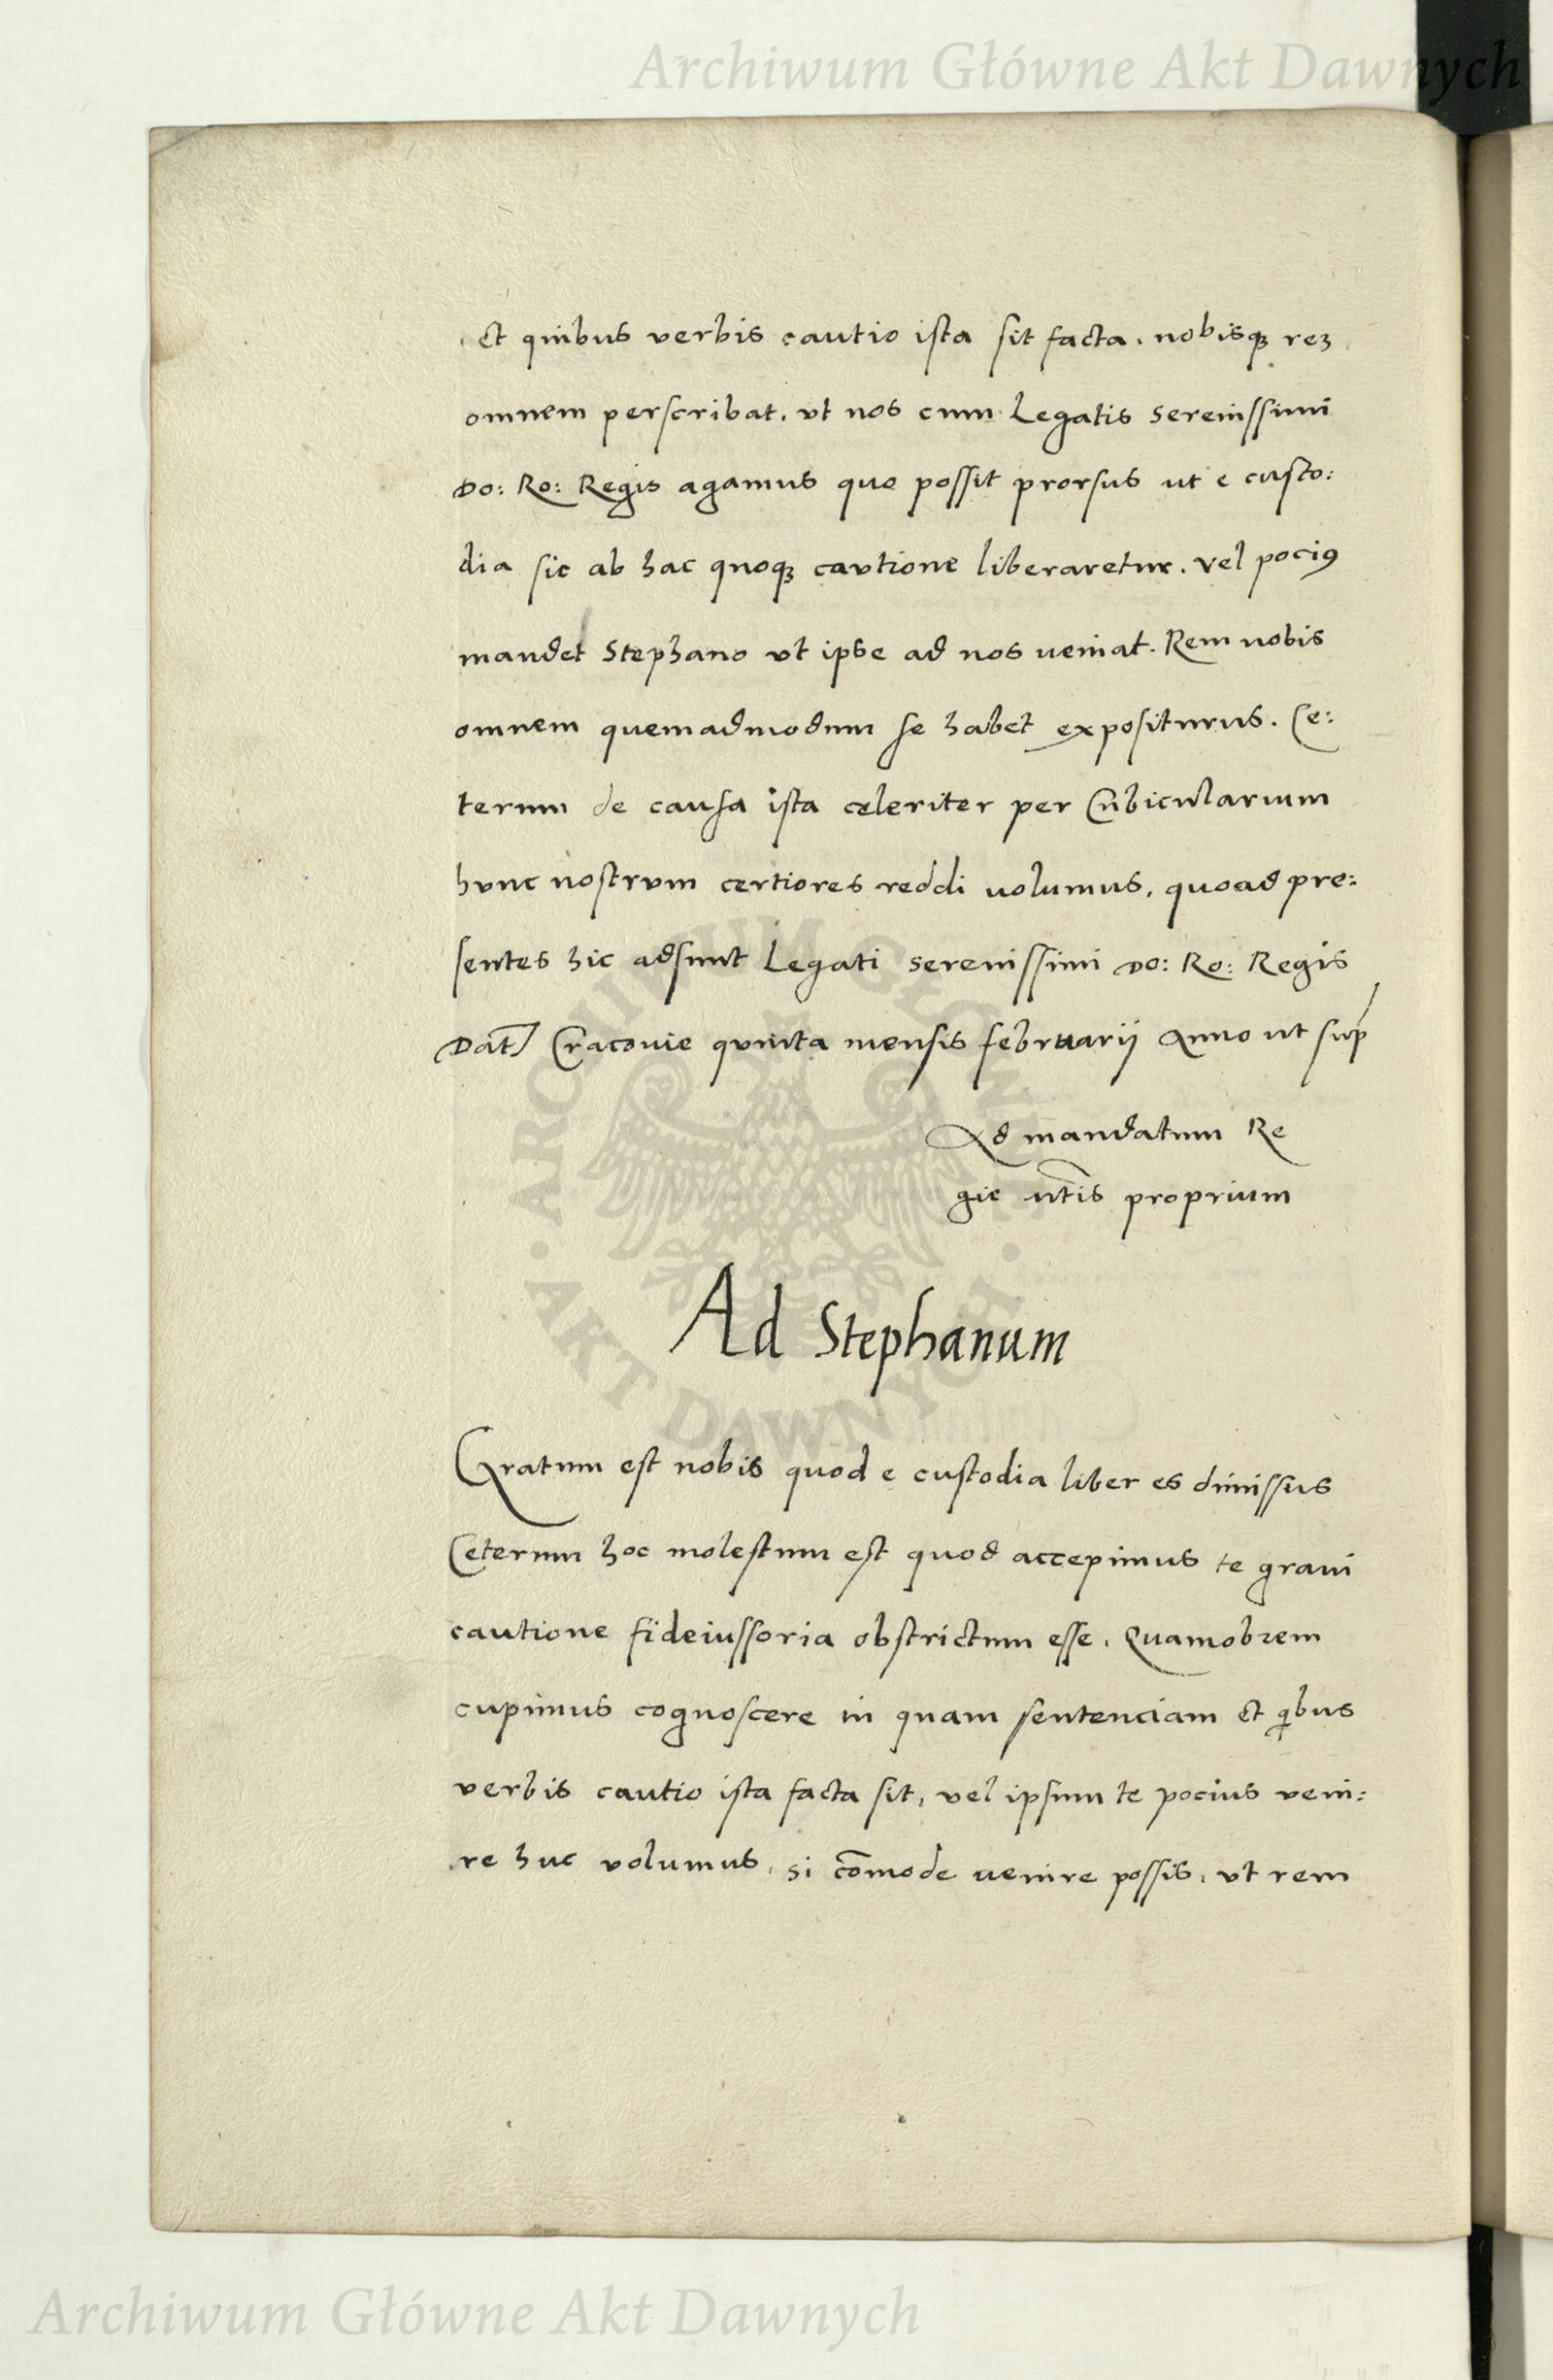 Archiwum Główne Akt Dawnych
et quibus verbis cautio ista sit facta. nobisqꝫ reꝫ
omnem perscribat. vt nos cum Legatis Serenissimi
Do: Ro: Regis agamus quo possit prorsus ut e custo:
dia sic ab hac quoqꝫ cautione liberaretur. vel pociꝰ
mandet Stephano vt ipse ad nos ueniat. Rem nobis
omnem quemadmodum se habet expositurus. Ce:
terum de causa ista celeriter per Cubicularium
hunc nostrum certiores reddi uolumus, quoad pre:
sentes hic adsunt Legati serenissimi Do: Ro: Regis
Dat Cracouie quinta mensis februarij Anno ut sup
Ad mandatum Re
gie mtis proprium
Ad Stephanum
Gratum est nobis quod e custodia liber es dimissus
Ceterum hoc molestum est quod accepimus te graui
cautione fideiussoria obstrictum esse. Quamobrem
cupimus cognoscere in quam sentenciam et qibus
verbis cautio ista facta sit, vel ipsum te pocius veni:
re huc volumus, si com̄ode uenire possis, vt rem
ARCHIWUM GŁÓWNE · AKT DAWNYCH ·
Archiwum Główne Akt Dawnych